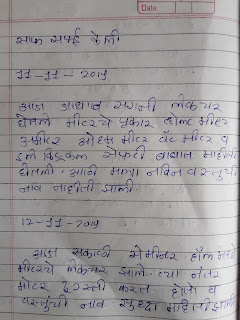 Date.
साफ सफाई केली
11-11-2019
आज आधाव सरांनी लेक्चर
घेतले मीटरचे प्रकार व्होल्ट मीटर
अमीटर ओहम मीटर वॅट मीटर व
इलेक्ट्रिकल सेफ्टी बाबात माहीती
घेतली. आणी मला नविन वस्तुची
नाव माहीती झाली
12-11-2019
आज सकाळी सेमीनर हॉल मध्ये
मीटरचे लेक्चर झाले. त्या नंतर
मोटर दुरस्ती करत होतो व
वस्तुची नाव सुध्दा माहिती झाली